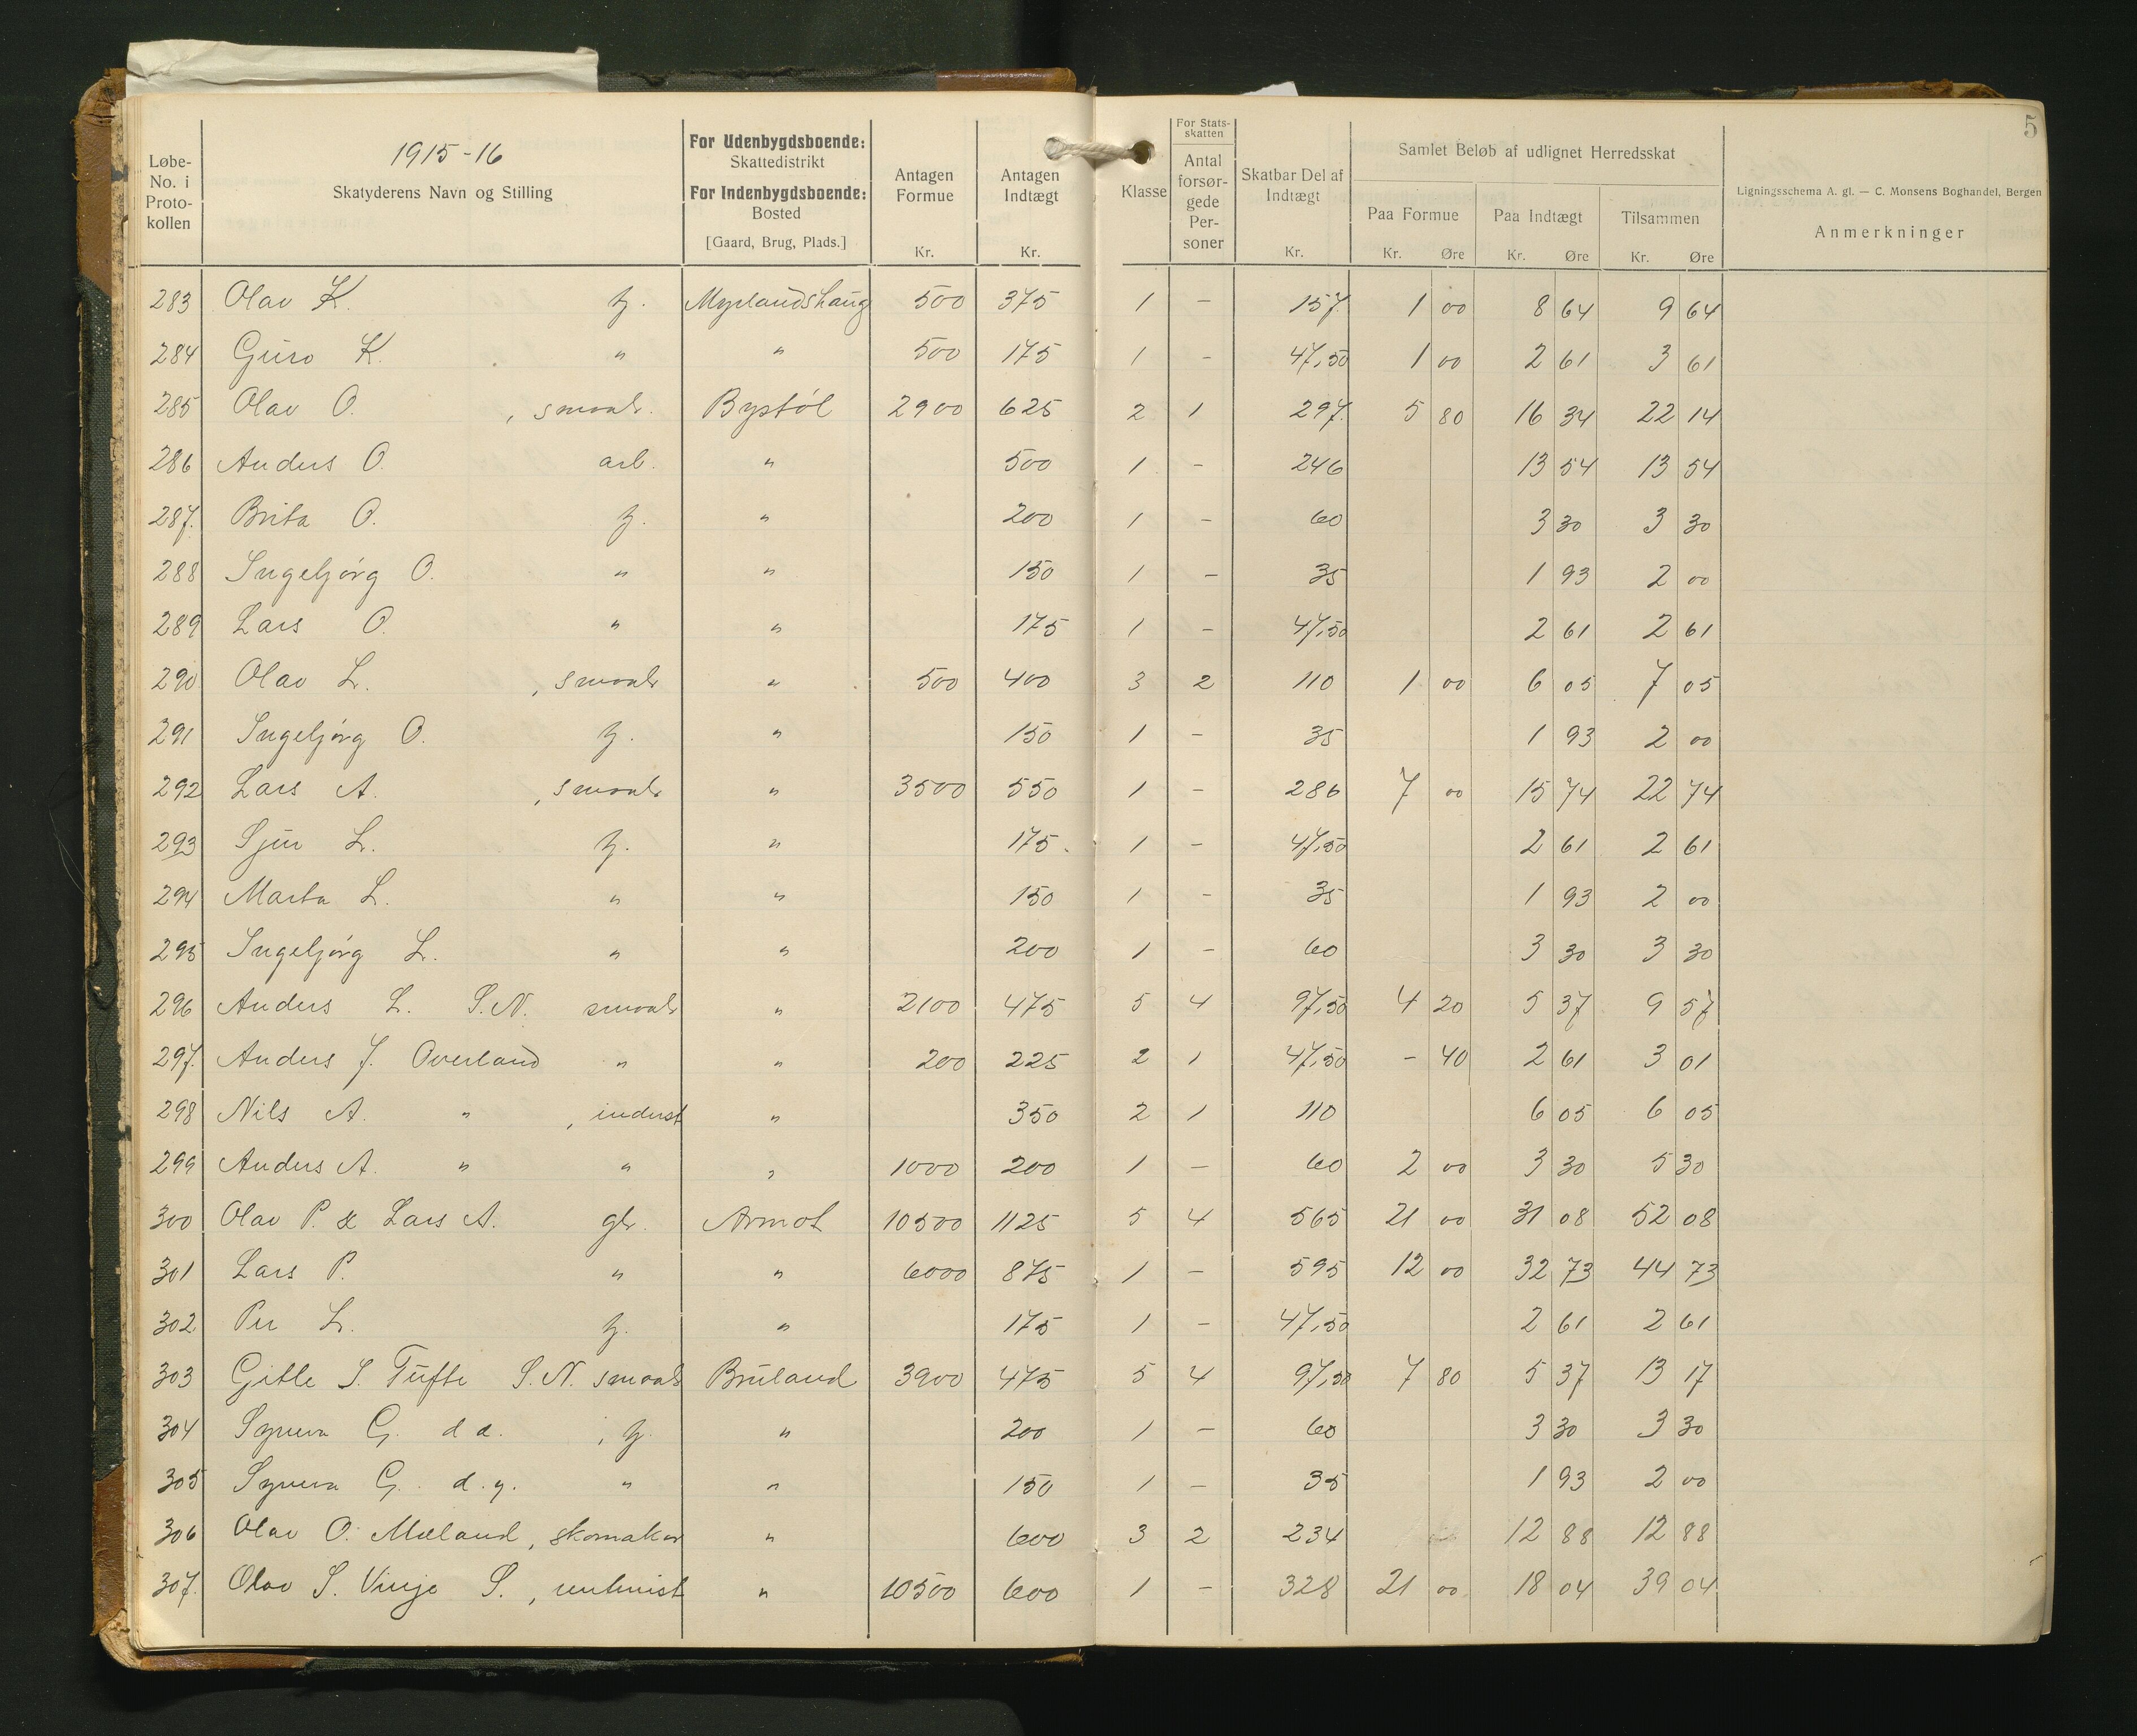 5
1915-16
Løbe-No. i Proto-kollen
Skatyderens Navn og Stilling
For Udenbygdsboende: Skattedistrikt
For Indenbygdsboende: Bosted
[Gaard, Brug, Plads.]
Antagen Formue Kr.
Antagen Indtægt Kr.
Klasse
For Stats-skatten
Antal forsør-gede Per-soner
Skatbar Del af Indtægt Kr.
Samlet Beløb af udlignet Herredsskat
Paa Formue Kr. Øre
Paa Indtægt Kr. Øre
Tilsammen Kr. Øre
Ligningsschema A. gl. — C. Monsens Boghandel, Bergen
Anmerkninger
283 Olav K. Myrlandshaug 500 375 1 - 157. 1 00 8 64 9 64
284 Guro K. " " 500 175 1 - 47,50 1 00 2 61 3 61
285 Olav O. , smaabr. Bystøl 2900 625 2 1 297. 5 80 16 34 22 14
286 Anders O. arb. " 500 1 - 246 13 54 13 54
287. Brita O. " 200 1 - 60 3 30 3 30
288 Ingebjørg O. " " 150 1 - 35 1 93 2 00
289 Lars O. " " 175 1 - 47,50 2 61 2 61
290 Olav L. , smaabr " 500 400 3 2 110 1 00 6 05 7 05
291 Ingebjørg O. " 150 1 - 35 1 93 2 00
292 Lars A. , smaabr " 3500 550 1 - 286 7 00 15 74 22 74
293 Sjur L. " 175 1 - 47,50 2 61 2 61
294 Marta L. " " 150 1 - 35 1 93 2 00
295 Ingebjørg L. " " 200 1 - 60 3 30 3 30
296 Anders L. S.N. smaabr " 2100 475 5 4 97,50 4 20 5 37 9 57
297. Anders J. Overland " " 200 225 2 1 47,50 - 40 2 61 3 01
298 Nils A. " , inderst " 350 2 1 110 6 05 6 05
299 Anders A. " " " 1000 200 1 - 60 2 00 3 30 5 30
300 Olav P. & Lars A. gbr. Armot 10500 1125 5 4 565 21 00 31 08 52 08
301 Lars P. " " 6000 875 1 - 595 12 00 32 73 44 73
302 Per L. " 175 1 - 47,50 2 61 2 61
303 Gitle S. Tufte S.N. smaabr Bruland 3900 475 5 4 97,50 7 80 5 37 13 17
304 Synneva G. d.e. " 200 1 - 60 3 30 3 30
305 Synneva G. d.y. " " 150 1 - 35 1 93 2 00
306 Olav O. Mæland, skomaker " 600 3 2 234 12 88 12 88
307. Olav S. Vinje S., rentenist " 10500 600 1 - 328 21 00 18 04 39 04